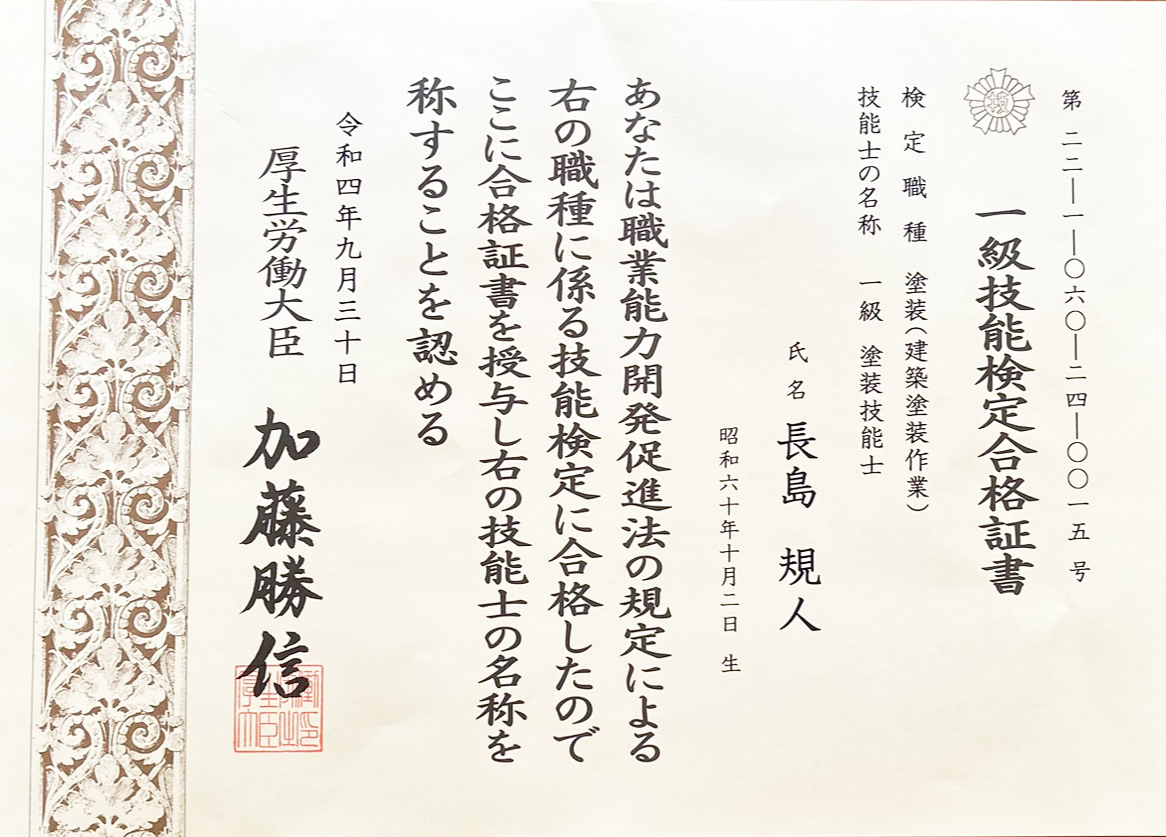 第二二―一―〇六〇―二四―〇〇一五号
一級技能検定合格証書
検定職種 塗装(建築塗装作業)
技能士の名称 一級 塗装技能士
氏名 長島 規人
昭和六十年十月二日 生
あなたは職業能力開発促進法の規定による
右の職種に係る技能検定に合格したので
ここに合格証書を授与し右の技能士の名称を
称することを認める
令和四年九月三十日
厚生労働大臣 加藤勝信